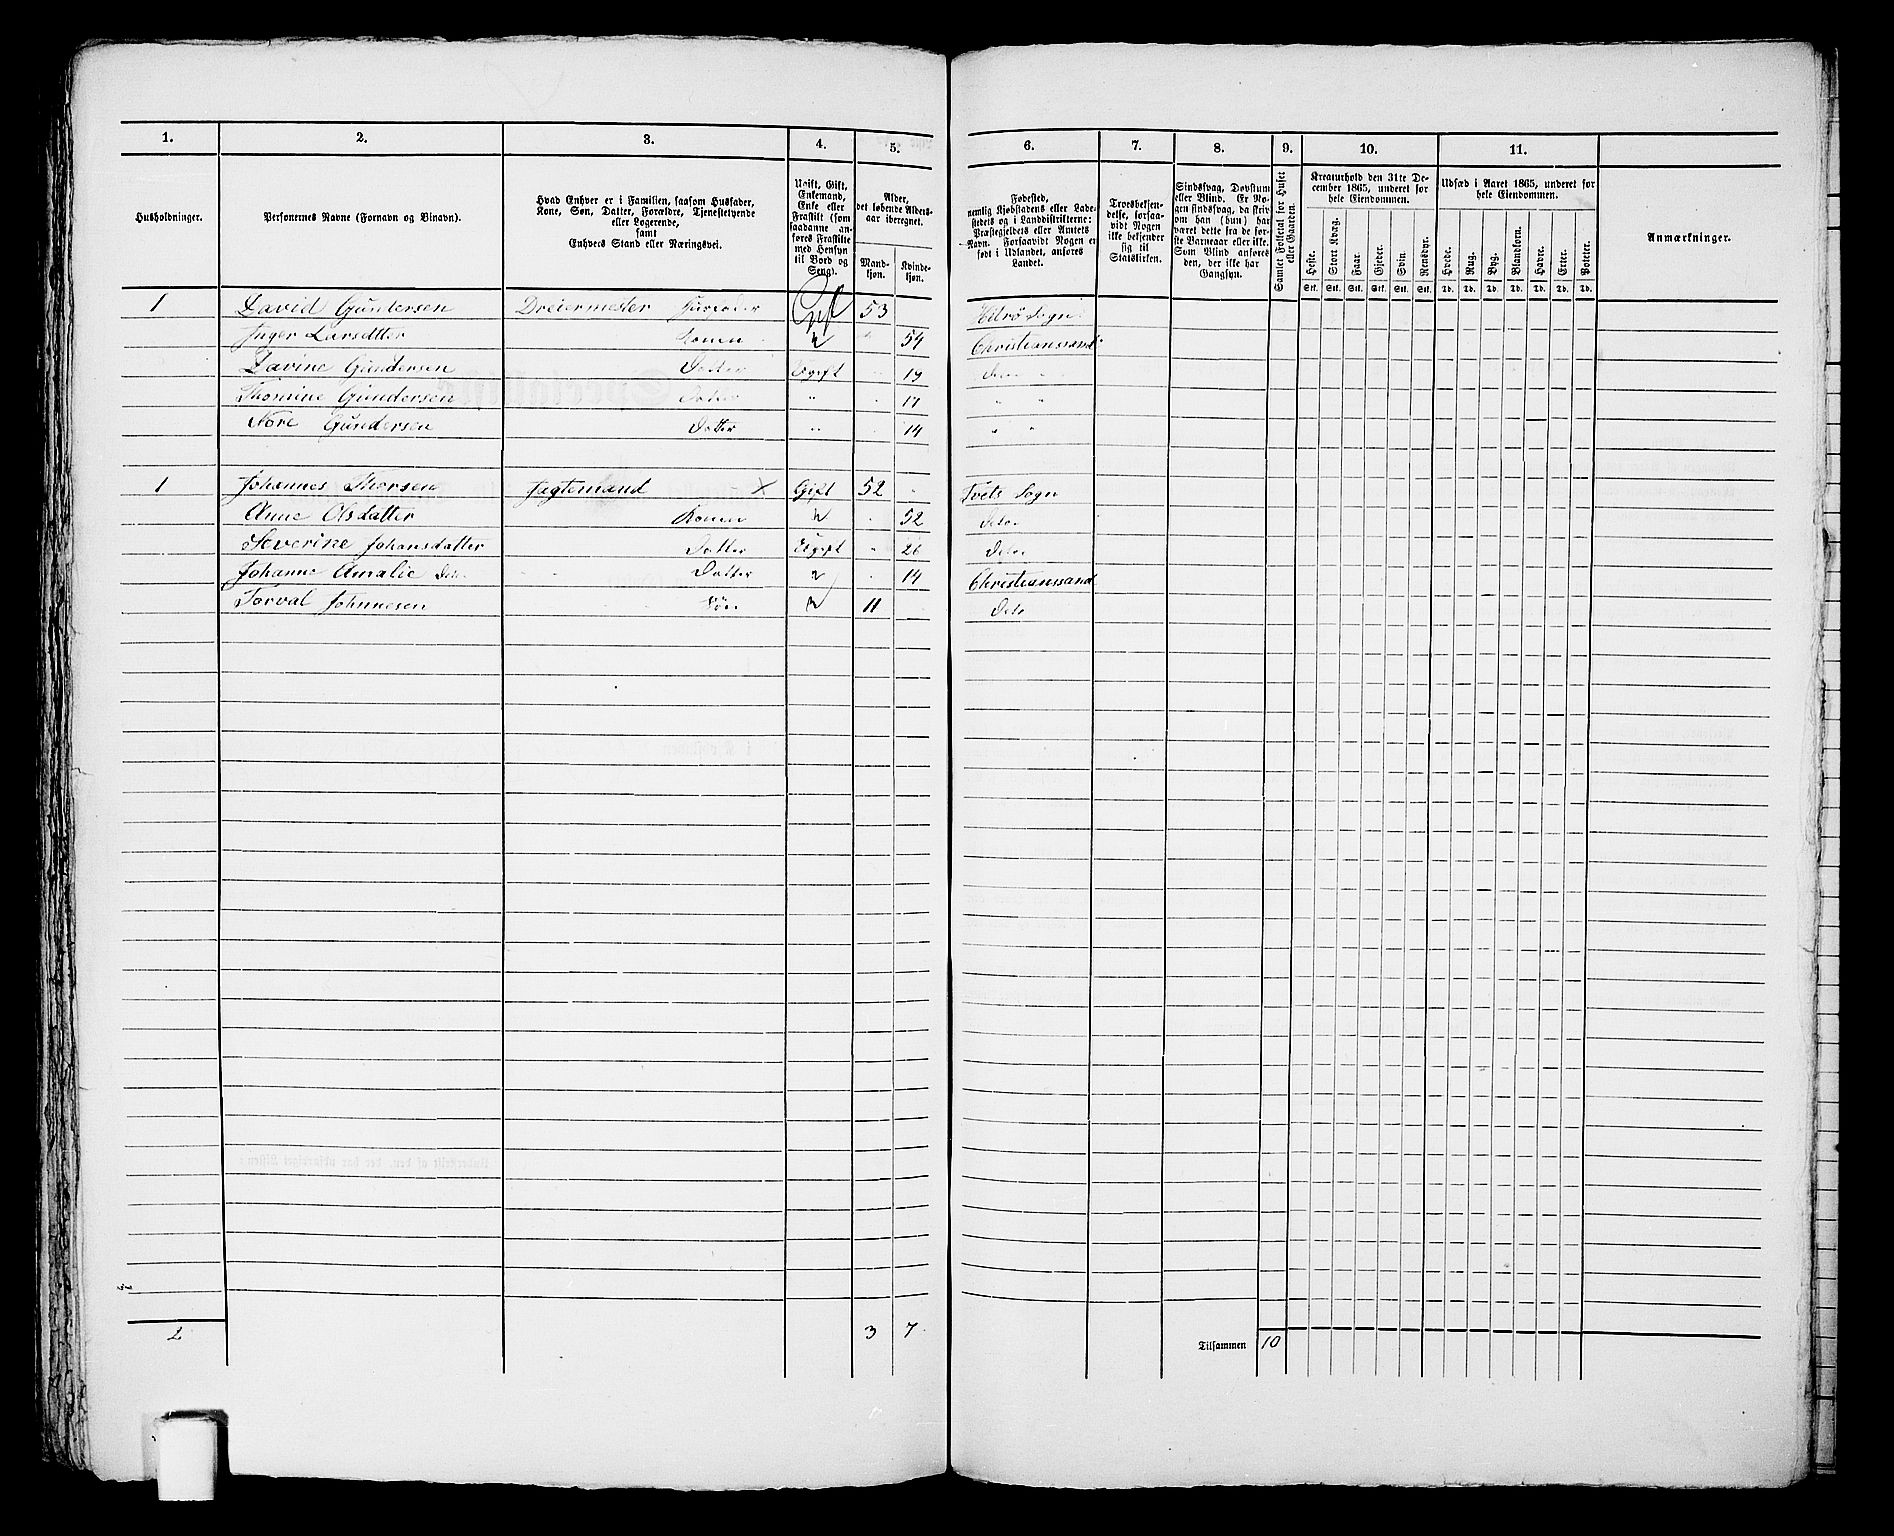 1. 2. 3. 4. 5. 6. 7. 8. 9. 10. 11.
Husholdninger.
Personernes Navne (Fornavn og Binavn).
Hvad Enhver er i Familien, saasom Husfader,
Kone, Søn, Datter, Forældre, Tjenestetyende
eller Logerende,
samt
Enhvers Stand eller Næringsvei.
Ugift, Gift,
Enkemand,
Enke eller
Fraskilt (som
saadanne an-
føres Fraskilte
med Hensyn
til Bord og
Seng).
Alder,
det løbende Alders-
aar iberegnet.
Mand-
kjøn.
Kvinde-
kjøn.
Fødested,
nemlig Kjøbstadens eller Lade-
stedets og i Landdistrikterne:
Præstegjeldets eller Amtets
Navn. Forsaavidt Nogen er
født i Udlandet, anføres
Landet.
Troesbekjen-
delse, forsaa-
vidt Nogen
ikke bekjender
sig til
Statskirken.
Sindssvag, Døvstum
eller Blind. Er No-
gen sindssvag, da skriv
om han (hun) har
været dette fra de før-
ste Barneaar eller ikke.
Som Blind anføres
den, der ikke har
Gangsyn.
Samlet Folketal for Huset
eller Gaarden.
Kreaturhold den 31te De-
cember 1865, underet for
hele Eiendommen.
Heste. Stort Kvæg. Faar. Gjeder. Svin. Rensdyr.
Stk. Stk. Stk. Stk. Stk. Stk.
Udsæd i Aaret 1865, underet for
hele Eiendommen.
Hvede. Rug. Byg. Blandkorn. Havre. Erter. Poteter.
Td. Td. Td. Td. Td. Td. Td.
Anmærkninger.
1 David Gundersen Dreiermester Husfader Gift 53 Hitrø Sogn
Inger Larsdtter Konen " 54 Christianssand
Davine Gundersen Datter Ugift " 19 Do "
Thomine Gundersen Datter " " 17 " "
Tore Gundersen Datter " " 14 " "
1 Johannes Thorsen Jegtemand X Gift 52 Tvets Sogn
Anne Olsdatter Konen " 52 Deto
Severine Johansdatter Datter Ugift " 26 Deto
Johanne Amalie Deto Datter " 14 Christianssand
Torval Johnnesen Søn " 11 Deto
2 3 7 Tilsammen 10